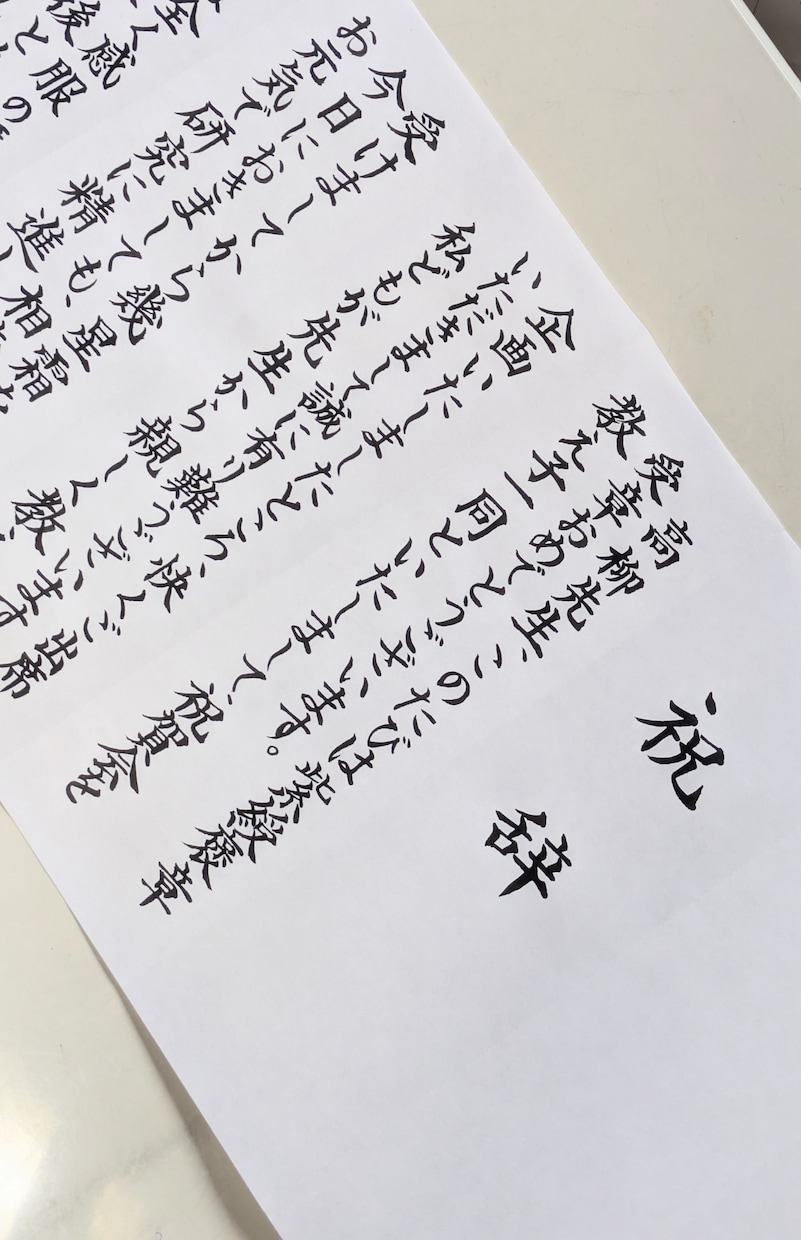 祝辞
高柳先生、このたびは紫綬褒章
受章おめでとうございます。
教え子一同といたしまして、祝賀会を
企画いたしましたところ、快くご出席
いただきまして誠に有り難うございます
私どもが先生から親しく教
受けましてから幾星霜
今日におきましても、相
お元気で研究に精進し
全く感服
後と